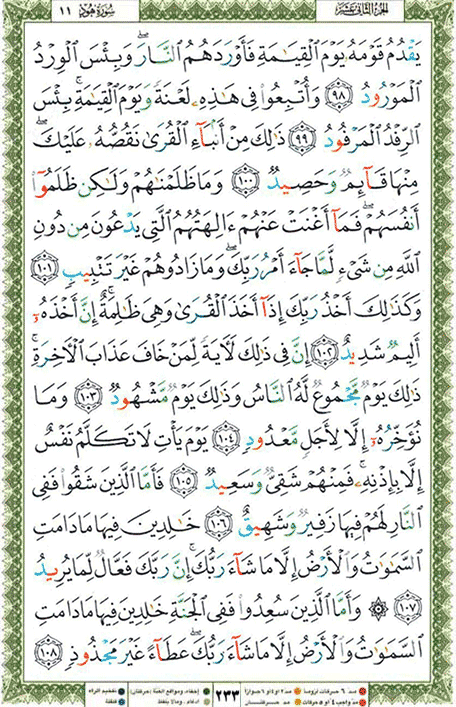 الجزء الثاني عشر سورة هود ١١
يَقْدُمُ قَوْمَهُۥ يَوْمَ ٱلْقِيَـٰمَةِ فَأَوْرَدَهُمُ ٱلنَّارَ ۖ وَبِئْسَ ٱلْوِرْدُ
ٱلْمَوْرُودُ ٩٨ وَأُتْبِعُوا۟ فِى هَـٰذِهِۦ لَعْنَةً وَيَوْمَ ٱلْقِيَـٰمَةِ ۚ بِئْسَ
ٱلرِّفْدُ ٱلْمَرْفُودُ ٩٩ ذَٰلِكَ مِنْ أَنۢبَآءِ ٱلْقُرَىٰ نَقُصُّهُۥ عَلَيْكَ ۖ
مِنْهَا قَآئِمٌ وَحَصِيدٌ ١٠٠ وَمَا ظَلَمْنَـٰهُمْ وَلَـٰكِن ظَلَمُوٓا۟
أَنفُسَهُمْ ۖ فَمَآ أَغْنَتْ عَنْهُمْ ءَالِهَتُهُمُ ٱلَّتِى يَدْعُونَ مِن دُونِ
ٱللَّهِ مِن شَىْءٍ لَّمَّا جَآءَ أَمْرُ رَبِّكَ ۖ وَمَا زَادُوهُمْ غَيْرَ تَتْبِيبٍ ١٠١
وَكَذَٰلِكَ أَخْذُ رَبِّكَ إِذَآ أَخَذَ ٱلْقُرَىٰ وَهِىَ ظَـٰلِمَةٌ ۚ إِنَّ أَخْذَهُۥٓ
أَلِيمٌ شَدِيدٌ ١٠٢ إِنَّ فِى ذَٰلِكَ لَـَٔايَةً لِّمَنْ خَافَ عَذَابَ ٱلْـَٔاخِرَةِ ۚ
ذَٰلِكَ يَوْمٌ مَّجْمُوعٌ لَّهُ ٱلنَّاسُ وَذَٰلِكَ يَوْمٌ مَّشْهُودٌ ١٠٣ وَمَا
نُؤَخِّرُهُۥٓ إِلَّا لِأَجَلٍ مَّعْدُودٍ ١٠٤ يَوْمَ يَأْتِ لَا تَكَلَّمُ نَفْسٌ
إِلَّا بِإِذْنِهِۦ ۚ فَمِنْهُمْ شَقِىٌّ وَسَعِيدٌ ١٠٥ فَأَمَّا ٱلَّذِينَ شَقُوا۟ فَفِى
ٱلنَّارِ لَهُمْ فِيهَا زَفِيرٌ وَشَهِيقٌ ١٠٦ خَـٰلِدِينَ فِيهَا مَا دَامَتِ
ٱلسَّمَـٰوَٰتُ وَٱلْأَرْضُ إِلَّا مَا شَآءَ رَبُّكَ ۚ إِنَّ رَبَّكَ فَعَّالٌ لِّمَا يُرِيدُ
١٠٧ ۞ وَأَمَّا ٱلَّذِينَ سُعِدُوا۟ فَفِى ٱلْجَنَّةِ خَـٰلِدِينَ فِيهَا مَا دَامَتِ
ٱلسَّمَـٰوَٰتُ وَٱلْأَرْضُ إِلَّا مَا شَآءَ رَبُّكَ ۖ عَطَآءً غَيْرَ مَجْذُوذٍ ١٠٨
مد ٦ حركات لزوماً مد ٢ او ٤ او ٦ جوازاً إخفاء، ومواقع الغنة (حركتان) تفخيم الراء
٢٣٣
مد واجب ٤ أو ٥ حركات مد حركتان إدغام، ومالا يلفظ قلقلة